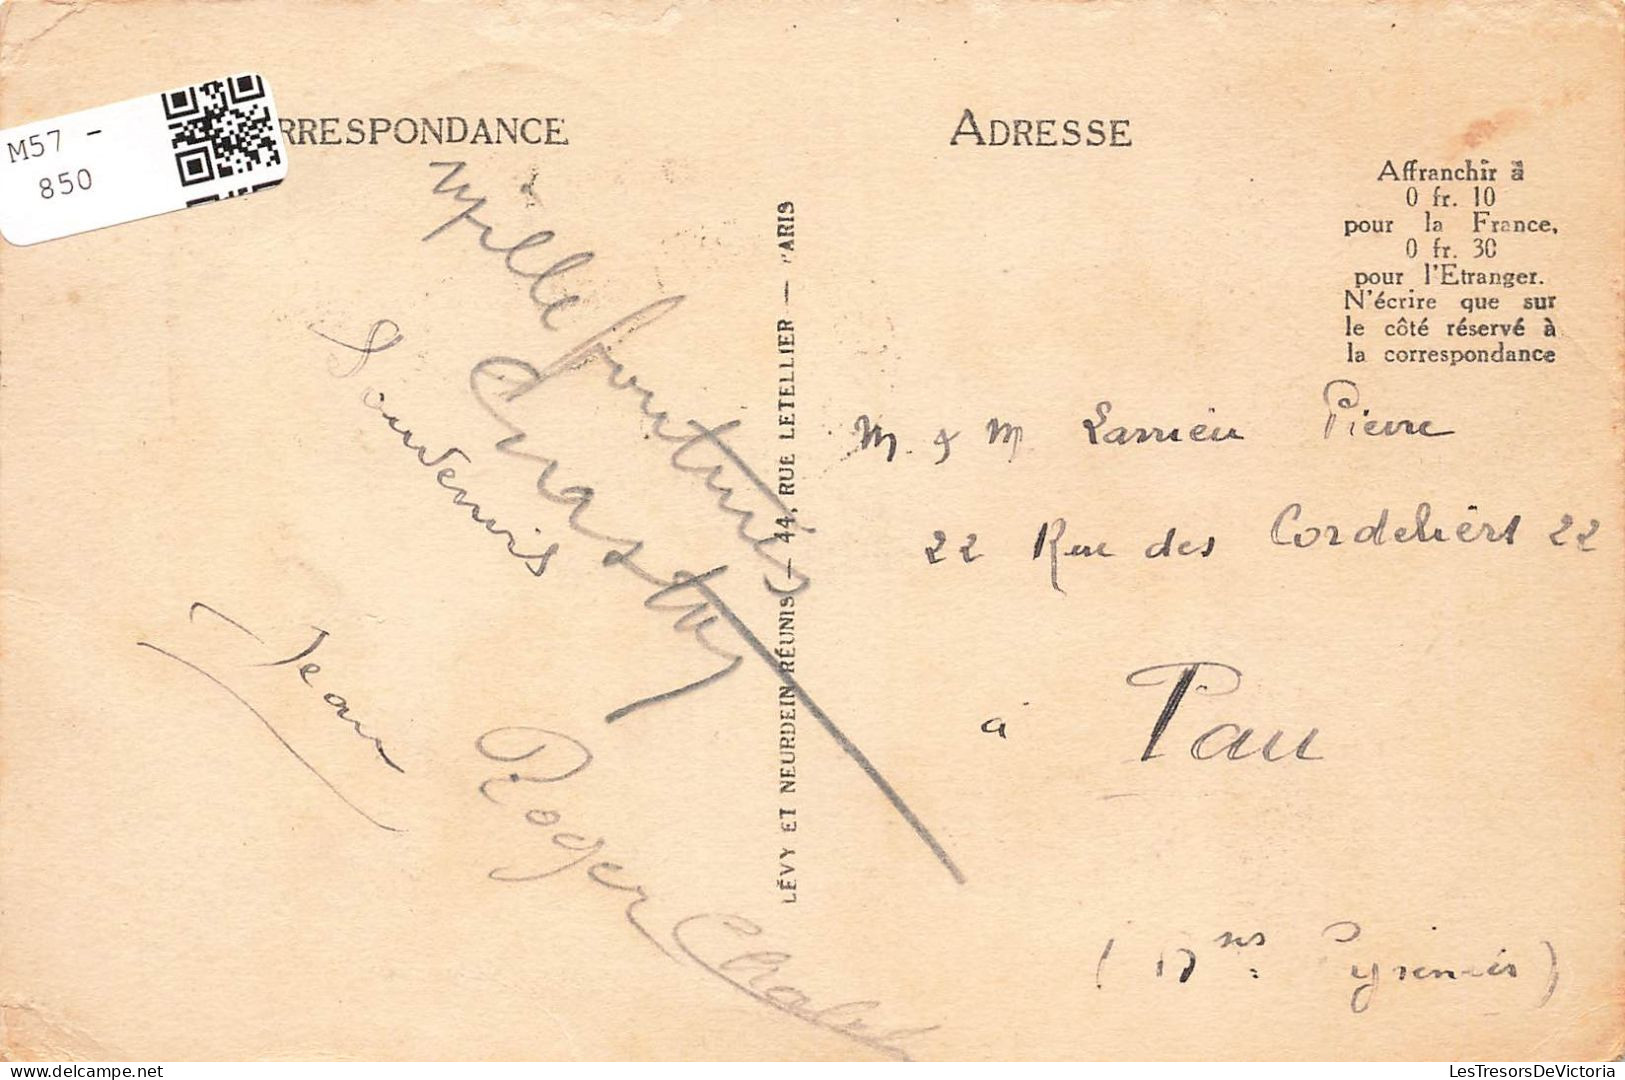 M57 -
850
RRESPONDANCE
ADRESSE
Affranchir à
0 fr. 10
pour la France,
0 fr. 30
pour l'Etranger.
N'écrire que sur
le côté réservé à
la correspondance
Mille
Souvenirs
Jean
Roger
LÉVY ET NEURDEIN RÉUNIS — 44, RUE LETELLIER — PARIS
M. & M. Larrieu Pierre
22 Rue des Cordeliers 22
à Pau
(Bses Pyrénées)
delcampe.net
LesTresorsDeVictoria